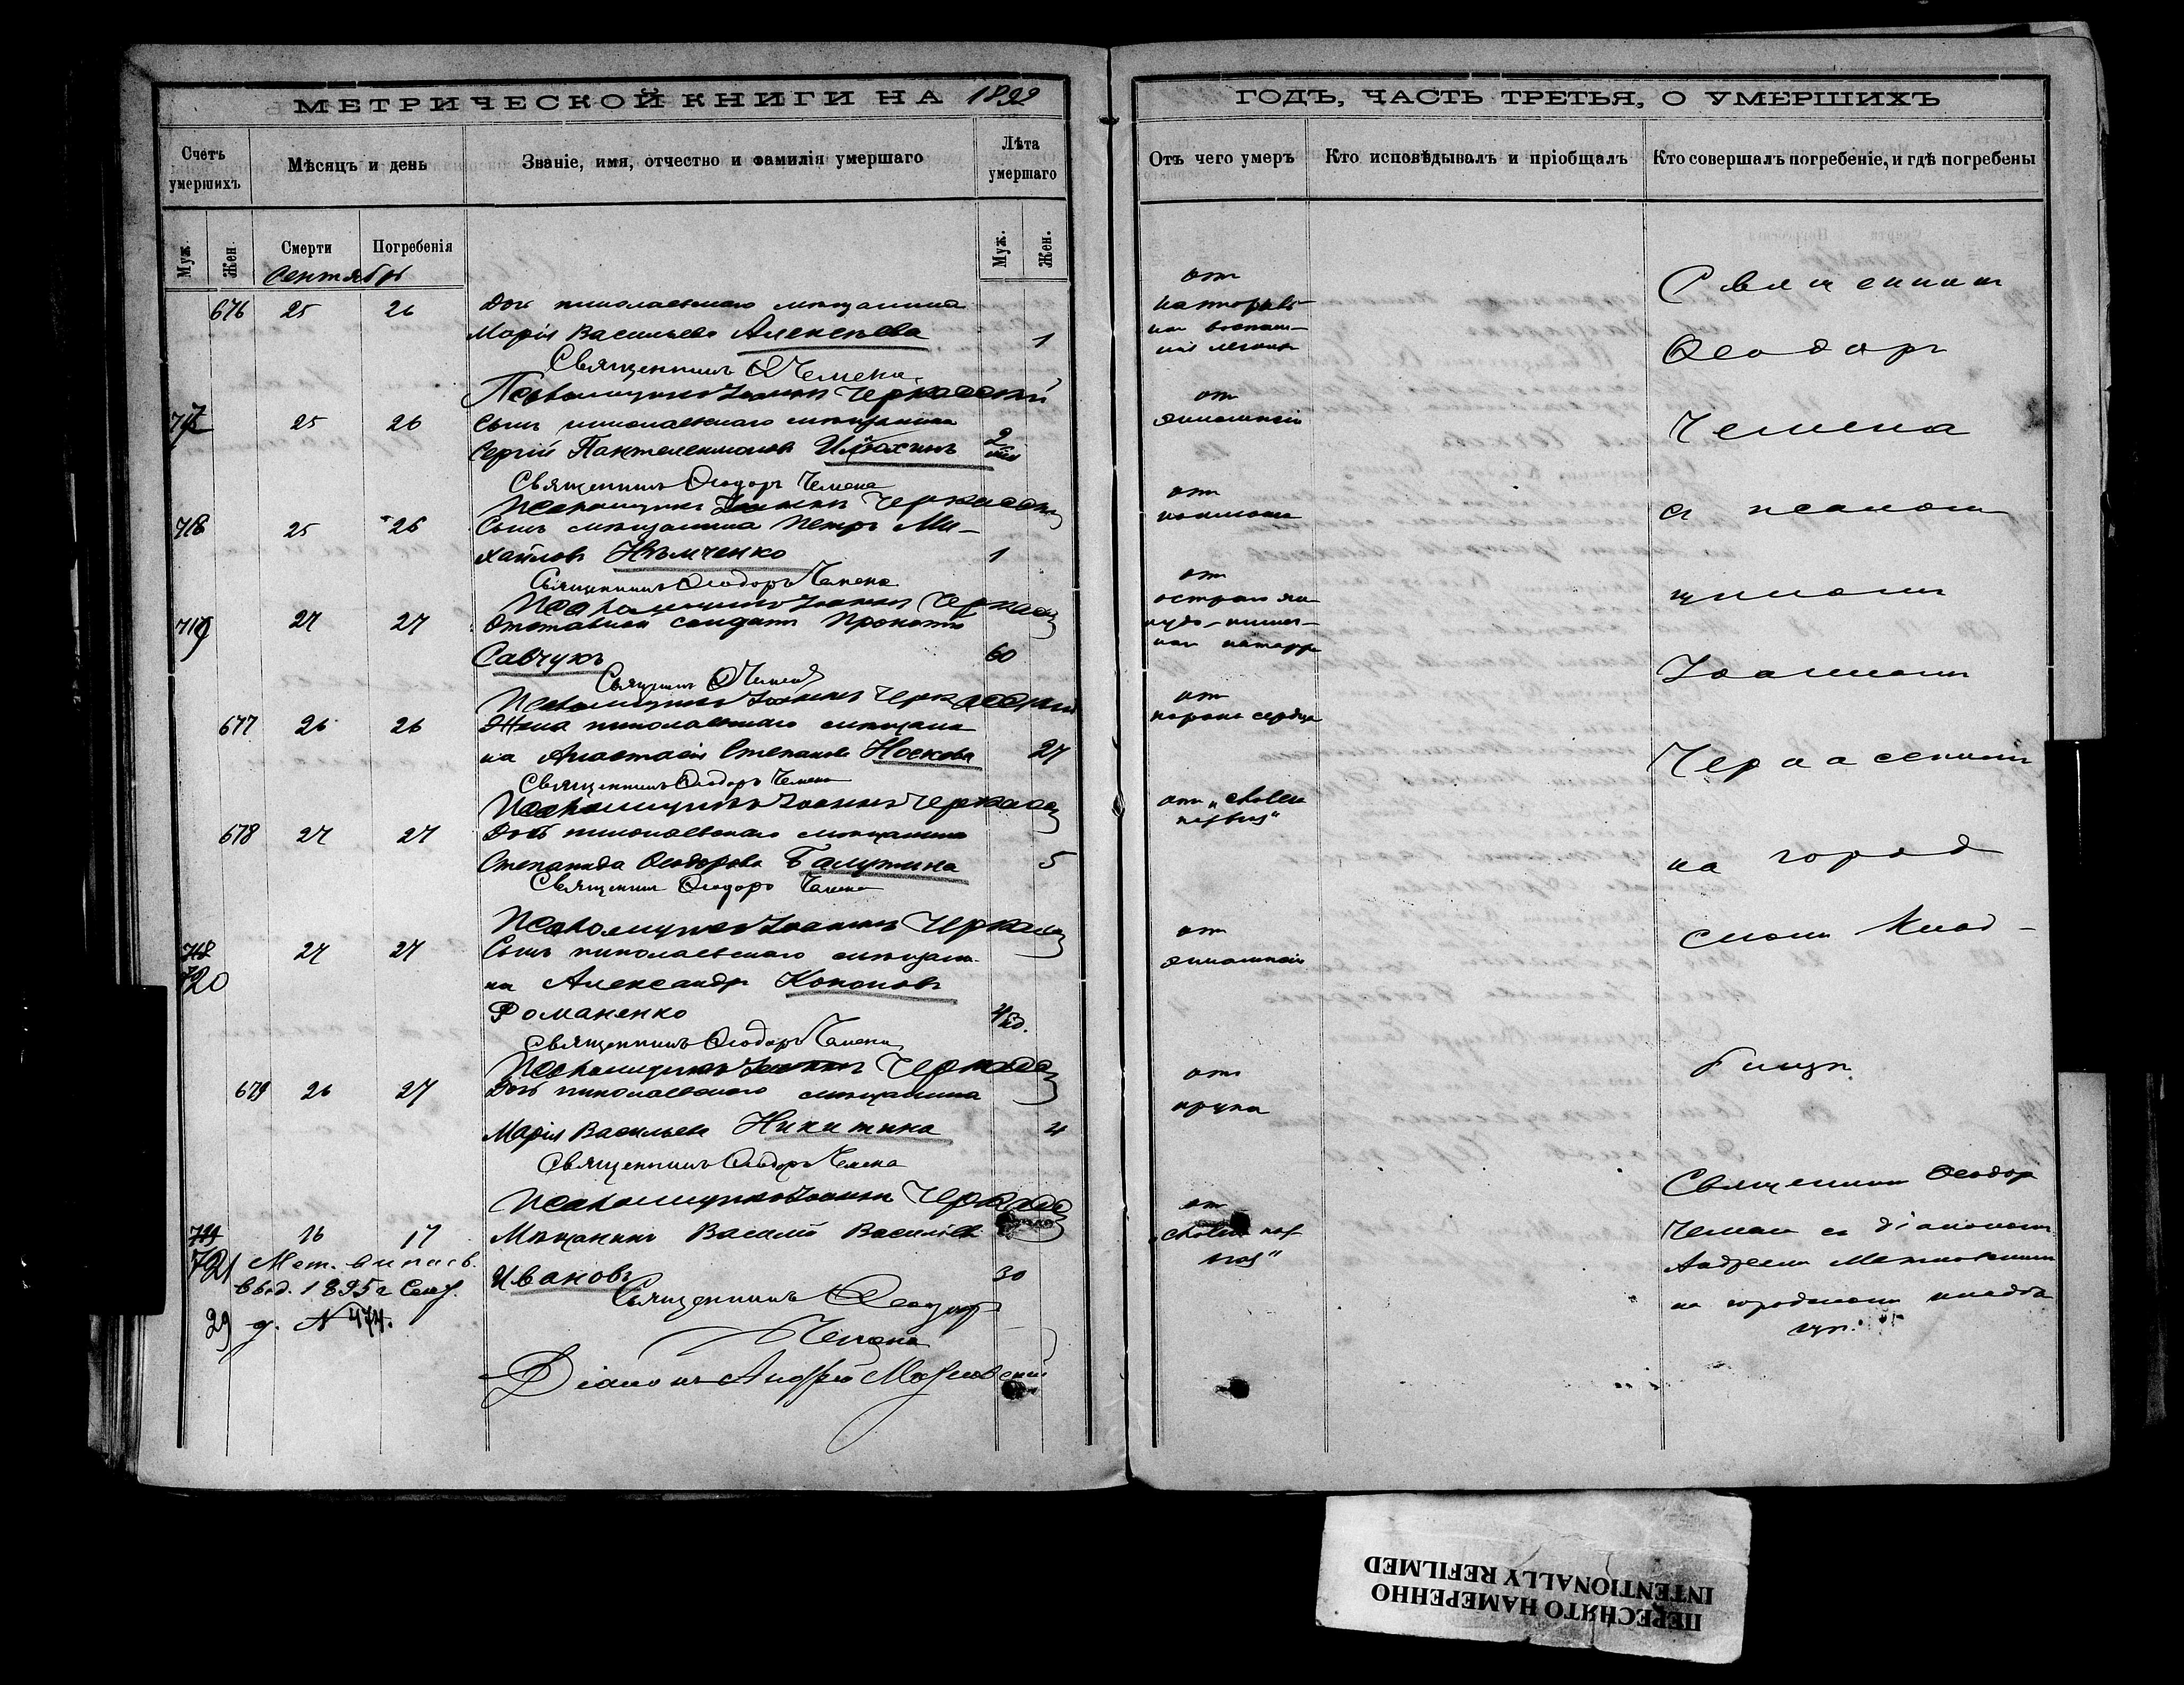 МЕТРИЧЕСКОЙ КНИГИ НА 1892
Счетъ умершихъ
Мѣсяцъ и день
Званіе, имя, отчество и фамилія умершаго
Лѣта умершаго
Муж. Жен. Смерти Погребенія Муж. Жен.
Сентябрь
676 25 26 Дочь николаевскаго мѣщанина
Марія Васильева Алексѣева 1
Священникъ Ѳ Чемена
Псаломщикъ Іоаннъ Черкасскій
717 25 26 Сынъ николаевскаго мѣщанина
Сергій Пантелеимоновъ 2
Священникъ Ѳеодоръ Чемена
Псаломщикъ Іоаннъ Черкасскій
718 25 26 Сынъ мѣщанина Петръ Ми-
хайловъ Нѣмченко 1
Священникъ Ѳеодоръ Чемена
Псаломщикъ Іоаннъ Черкасск
719 27 27 Отставной солдатъ Прокопій
Савчукъ 60
Священ Ѳ Чемена
Псаломщикъ Іоаннъ Черкасскій
677 26 26 Жена николаевскаго мѣщани-
на Анастасія Степанова Носкова 27
Священникъ Ѳеодоръ Чемена
Псаломщикъ Іоаннъ Черкасск
678 27 27 Дочь николаевскаго мѣщанина
Степанида Ѳеодорова Балутина 5
Священникъ Ѳеодоръ Чемена
Псаломщикъ Іоаннъ Черкасск
718 27 27 Сынъ николаевскаго мѣщани-
720 на Александръ Кононовъ
Романенко
Священникъ Ѳеодоръ Чемена
Псаломщикъ Іоаннъ Черкасск
679 26 27 Дочь николаевскаго мѣщанина
Марія Васильева Никитина 4
Священникъ Ѳеодоръ Чемена
Псаломщикъ Іоаннъ Черкасск
719 16 17 Мѣщанинъ Василій Васильевъ
721 Мет. выпись
Ивановъ 30
выд. 1895 г. Сент.
29 д. № 474.
Священникъ Ѳеодоръ
Чемена
Діаконъ Андрей
ГОДЪ, ЧАСТЬ ТРЕТЬЯ, О УМЕРШИХЪ
Отъ чего умеръ
Кто исповѣдывалъ и пріобщалъ
Кто совершалъ погребеніе, и гдѣ погребены
отъ
катарраль-
наг воспале-
нія легкихъ
отъ
отъ
коклюша
отъ
остраго же-
лудо-кишеч-
наг катарра
отъ
порока сердца
отъ „cholera
nostras"
отъ
отъ
крупа
отъ
„cholera nos-
tras"
Священникъ
Ѳеодоръ
Чемена
съ псалом-
щикомъ
Іоанномъ
Черкасскимъ
на город-
скомъ клад-
бищѣ
Священникъ Ѳеодоръ
Чемена съ діакономъ
Андреемъ
на городскомъ кладби
щѣ.
ПЕРЕСНЯТО НАМЕРЕННО
INTENTIONALLY REFILMED